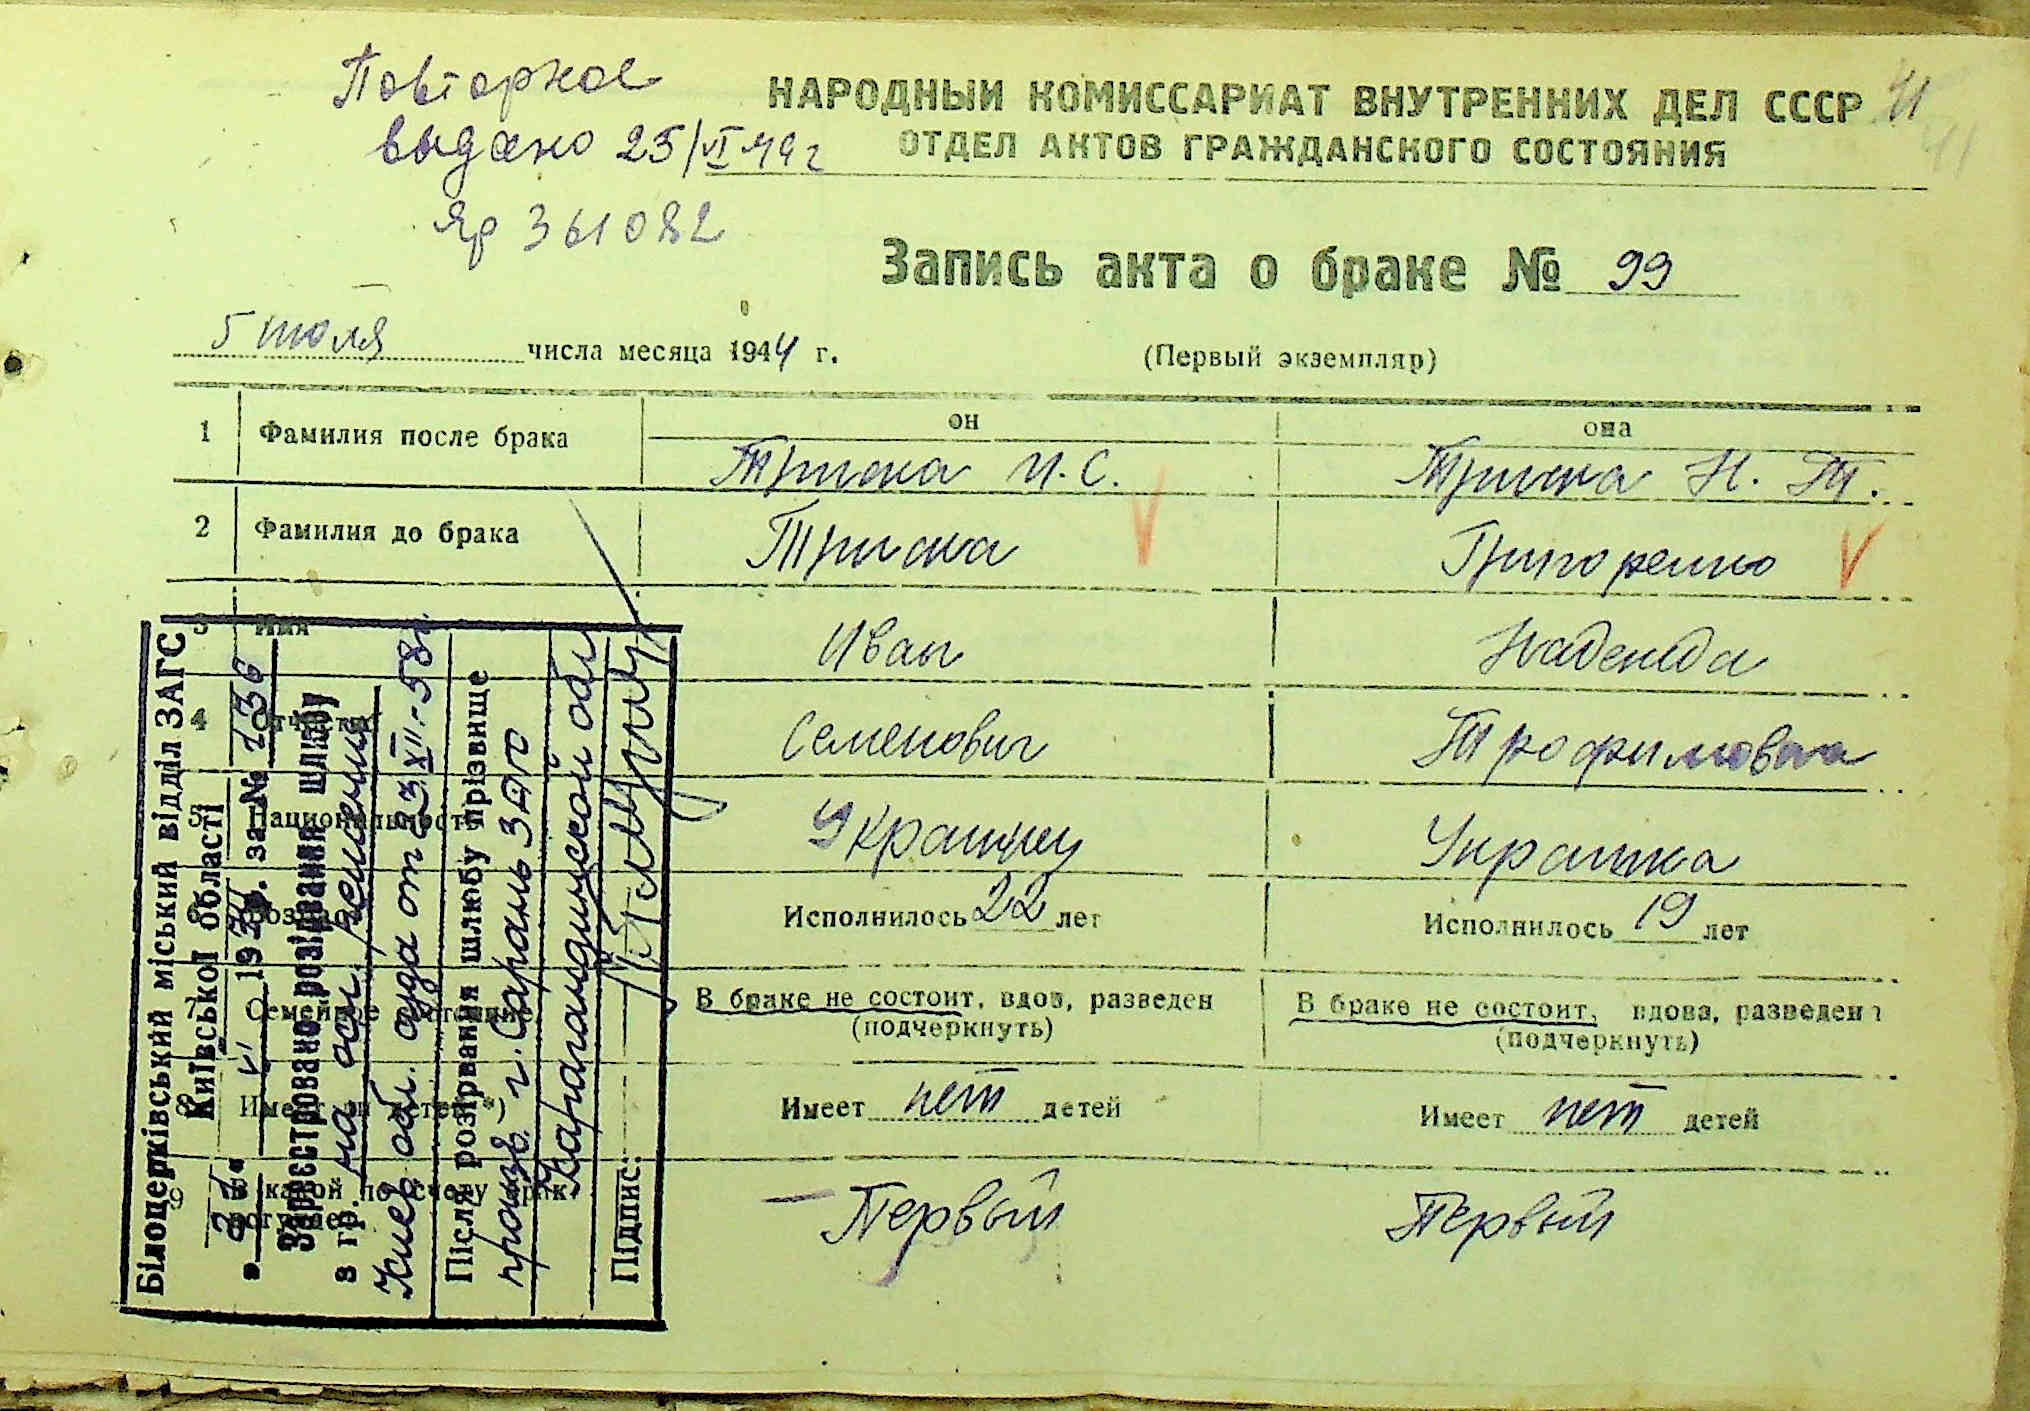 Повторное
выдано 25/VI 49 г
Яр 361082
41
41
НАРОДНЫЙ КОМИССАРИАТ ВНУТРЕННИХ ДЕЛ СССР
ОТДЕЛ АКТОВ ГРАЖДАНСКОГО СОСТОЯНИЯ
Запись акта о браке № 99
5 июля числа месяца 1944 г.
(Первый экземпляр)
он она
1 Фамилия после брака Триска И. С. Триска Н. Т.
2 Фамилия до брака Триска Григоренко
3 Имя Иван Надежда
4 Отчество Семенович Трофимовна
5 Национальность Украинец Украинка
6 Возраст Исполнилось 22 лет Исполнилось 19 лет
7 Семейное состояние В браке не состоит, вдов, разведен В браке не состоит, вдова, разведена
(подчеркнуть) (подчеркнуть)
8 Имеет ли детей *) Имеет нет детей Имеет нет детей
9 В какой по счету брак Первый Первый
вступает
Білоцерківський міський відділ ЗАГС
Київської області
за № 136
Зареєстровано розірвання шлюбу
з гр. на осн. решения
Киев обл. суда от 23.XII-58г.
Після розірвання шлюбу прізвище
г. Сарань ЗАГС
Карагандинской обл
Підпис: